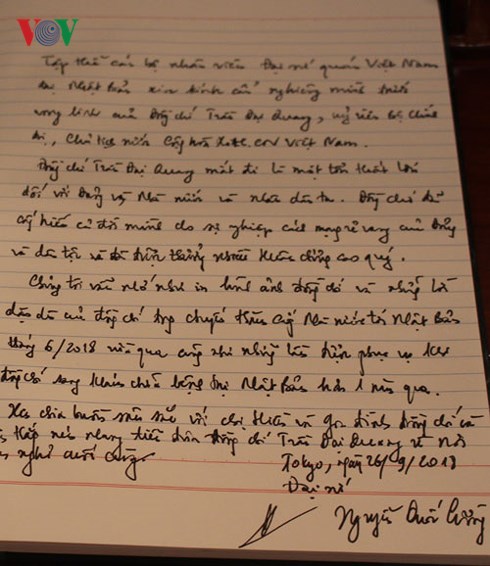 VOV
Tập thể cán bộ nhân viên Đại sứ quán Việt Nam
tại Nhật Bản xin kính cẩn nghiêng mình trước
vong linh của Đồng chí Trần Đại Quang, uỷ viên Bộ Chính
trị, Chủ tịch nước Cộng hòa XHCN Việt Nam.
Đồng chí Trần Đại Quang mất đi là một tổn thất lớn
đối với Đảng và Nhà nước và nhân dân ta. Đồng chí đã
cống hiến cả đời mình cho sự nghiệp cách mạng vẻ vang của Đảng
và dân tộc và đã được thưởng nhiều Huân chương cao quý.
Chúng tôi vẫn nhớ như in hình ảnh đồng chí và những lời
dặn dò của đồng chí trong chuyến thăm cấp Nhà nước tới Nhật Bản
tháng 6/2018 vừa qua cũng như những lần được phục vụ khi
đồng chí sang khám chữa bệnh tại Nhật Bản hơn 1 năm qua.
Xin chia buồn sâu sắc với chị Hiền và gia đình đồng chí và
thắp nén nhang tiễn đưa đồng chí Trần Đại Quang về nơi
nghỉ cuối cùng.
Tokyo, ngày 26/9/2018
Đại sứ
Nguyễn Quốc Cường